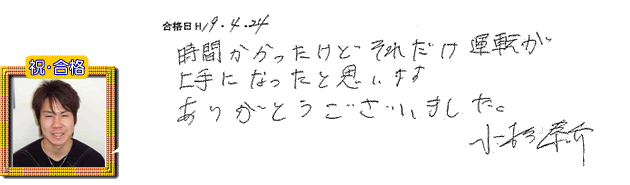 合格日H19.4.24
時間かかったけど それだけ 運転が
上手になったと思います
ありがとうございました。
祝・合格